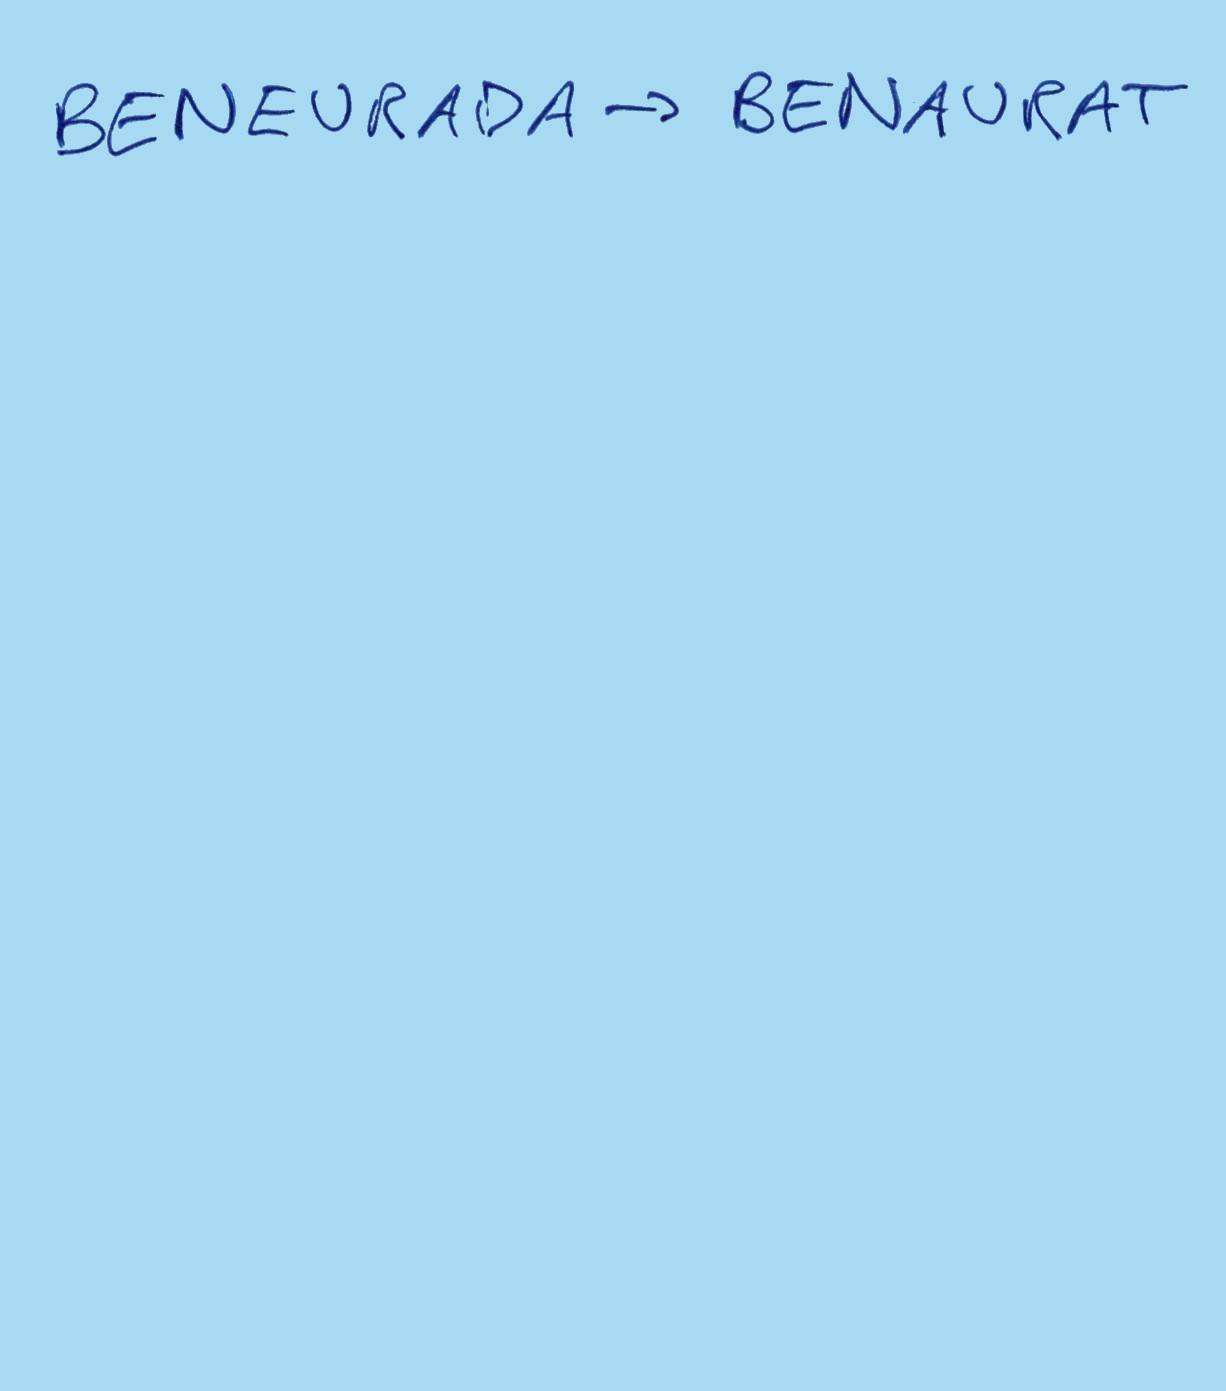 BENEURADA → BENAURAT